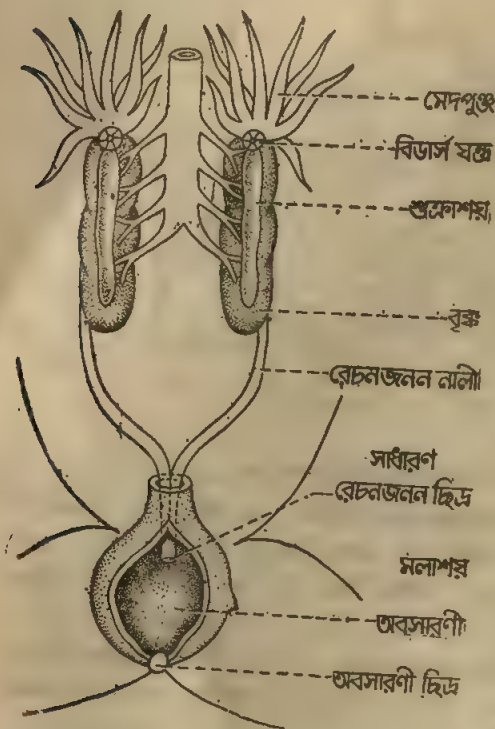 মেদপুঞ্জ
বিডার্স যন্ত্র
শুক্রাশয়
বৃক্ক
রেচনজনন নালী
সাধারণ
রেচনজনন ছিদ্র
মলাশয়
অবসারণী
অবসারণী ছিদ্র